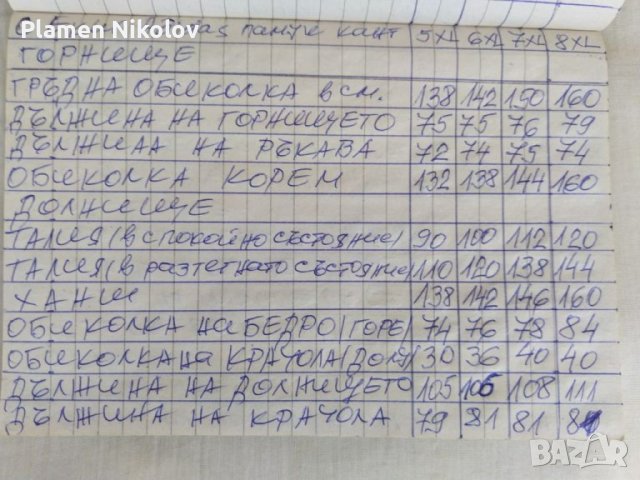 Plamen Nikolov
памук кант 5XL 6XL 7XL 8XL
ГОРНИЩЕ
ГРЪДНА ОБИКОЛКА в см. 138 142 150 160
ДЪЛЖИНА НА ГОРНИЩЕТО 75 75 76 79
ДЪЛЖИАА НА РЪКАВА 72 74 75 74
ОБИКОЛКА КОРЕМ 132 138 144 160
ДОЛНИЩЕ
ТАЛИЯ (в спокойно състояние) 90 100 112 120
ТАЛИЯ (в разтегнато състояние) 110 120 138 144
ХАНШ 138 142 146 160
ОБИКОЛКА на БЕДРО (ГОРЕ) 74 76 78 84
ОБИКОЛКА на КРАЧОЛА (ДОЛУ) 30 36 40 40
ДЪЛЖИНА НА ДОЛНИЩЕТО 105 105 108 111
ДЪЛЖИНА НА КРАЧОЛА 79 81 81
BAZAR